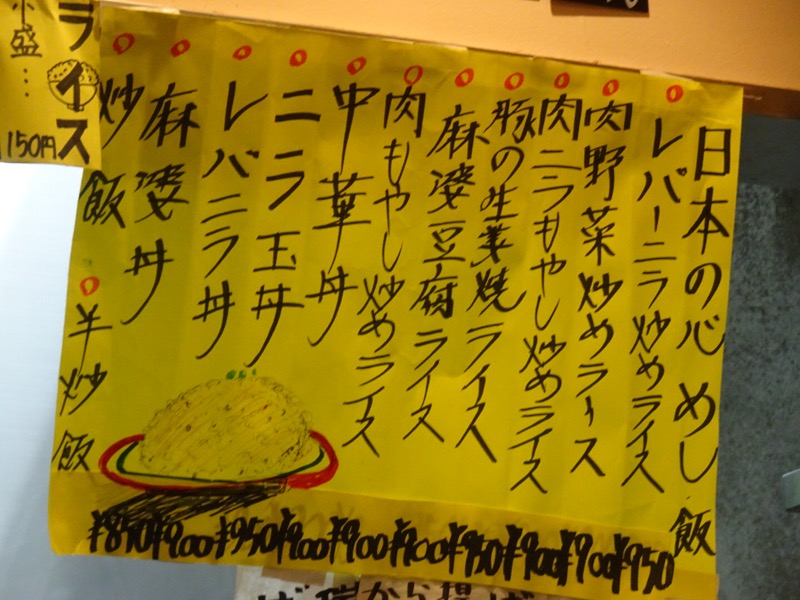 日本の心 めし 飯
レバーニラ炒めライス
肉野菜炒めライス
肉ニラもやし炒めライス
豚の生姜焼ライス
麻婆豆腐ライス
肉もやし炒めライス
中華丼
ニラ玉丼
レバニラ丼
麻婆丼
炒飯
半炒飯
¥850 ¥900 ¥950 ¥900 ¥900 ¥900 ¥950 ¥900 ¥900 ¥950
ライス
小盛…
150円
から揚げ